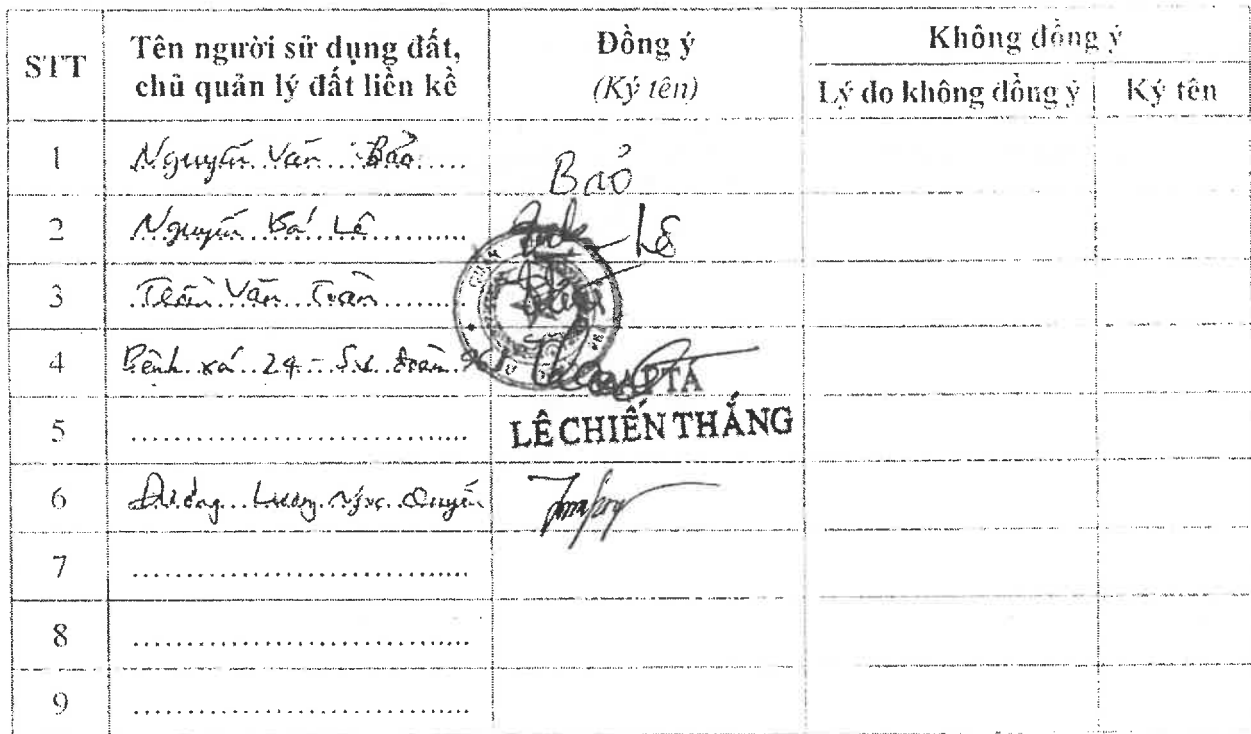 STT Tên người sử dụng đất, chủ quản lý đất liền kề Đồng ý (Ký tên) Không đồng ý
Lý do không đồng ý Ký tên
1 Nguyễn Văn Bảo Bảo
2 Nguyễn Bá Lê Lê
3 Trần Văn Toàn
4 Bệnh xá 24 - Sư đoàn
LÊ CHIẾN THẮNG
5
6 Đường Lương Ngọc Quyến
7
8
9